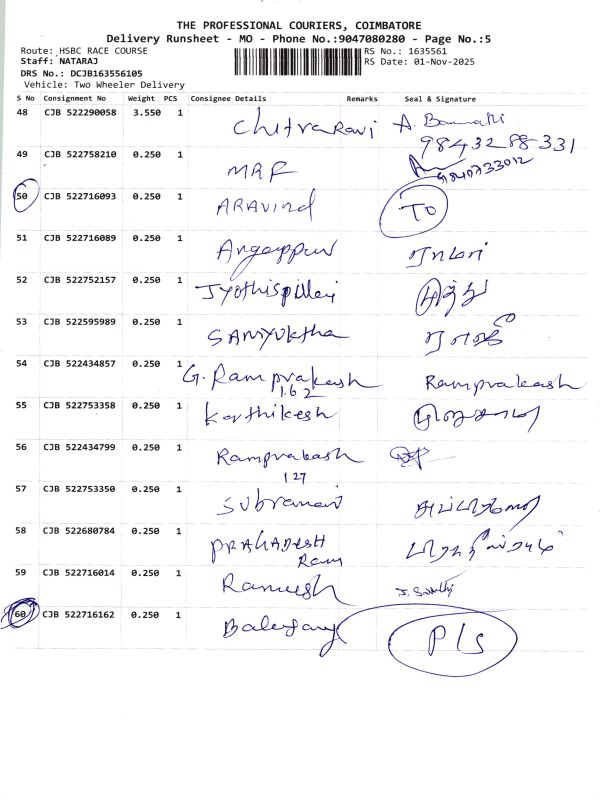 THE PROFESSIONAL COURIERS, COIMBATORE
Delivery Runsheet - MO - Phone No.:9047080280 - Page No.:5
Route: HSBC RACE COURSE RS No.: 1635561
Staff: NATARAJ RS Date: 01-Nov-2025
DRS No.: DCJB163556105
Vehicle: Two Wheeler Delivery
S No Consignment No Weight PCS Consignee Details Remarks Seal & Signature
48 CJB 522290058 3.550 1 Chitraravi
98432 88 331
49 CJB 522758210 0.250 1 MRF 9840733012
50 CJB 522716093 0.250 1 ARAVind TO
51 CJB 522716089 0.250 1
52 CJB 522752157 0.250 1 Jyothispillai முத்து
53 CJB 522595989 0.250 1 SAMYUKtha
54 CJB 522434857 0.250 1 G. Ramprakash Ramprakash
162
55 CJB 522753358 0.250 1 Karthikesh
56 CJB 522434799 0.250 1 Ramprakash
127
57 CJB 522753350 0.250 1 Subramani
58 CJB 522680784 0.250 1 PRAHADESH
Ram
59 CJB 522716014 0.250 1 Ramesh
60 CJB 522716162 0.250 1 P/s